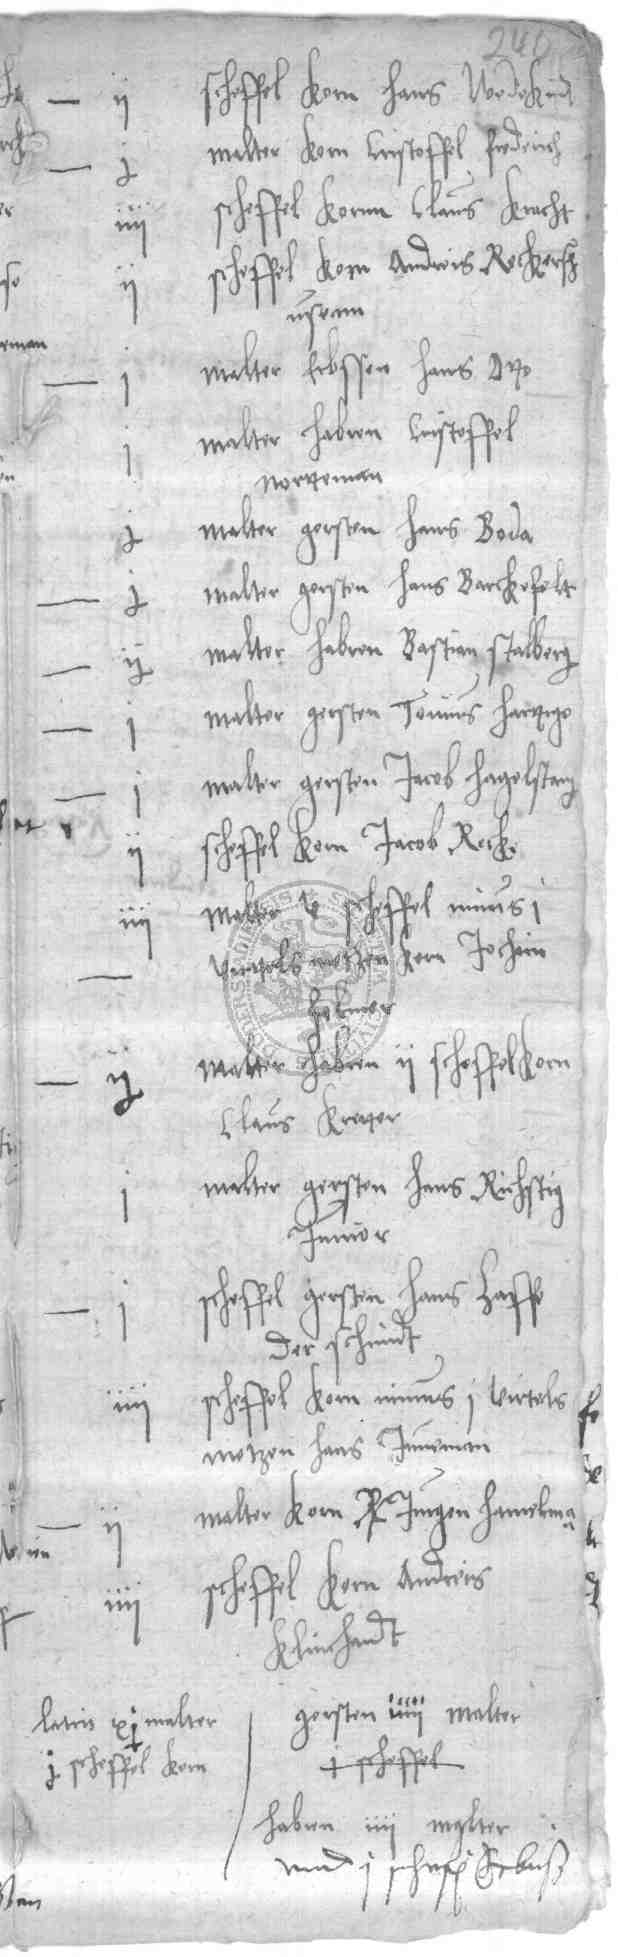 240
ij scheffel korn hans Wedekindt
j malter korn Cristoffel frederich
iiij scheffel kornn Claus kracht
ij scheffel korn Andreis Reckers
j malter Erbssen hans Otto
j malter habren Cristoffel
norteman
j malter gersten hans Boda
j malter gersten hans Barckefelt
ij malter habren Bastian stalberg
j malter gersten Tonius hartige
j malter gersten Jacob hagelstang
ij scheffel korn Jacob Recke
iiij malter v scheffel minus j
virtels metzen korn Jochim
helmer
ij malter habren ij scheffel korn
Claus kreger
j malter gersten hans Richstig
Junior
j scheffel gersten hans hasse
der schmidt
iiij scheffel korn minus j virtels
metzen hans Juneman
ij malter korn Jurgen hanekma
iiij scheffel korn Andreis
klinchardt
latus xj malter
j scheffel korn
gersten iiiij malter
j scheffel
habren iiij malter
und j